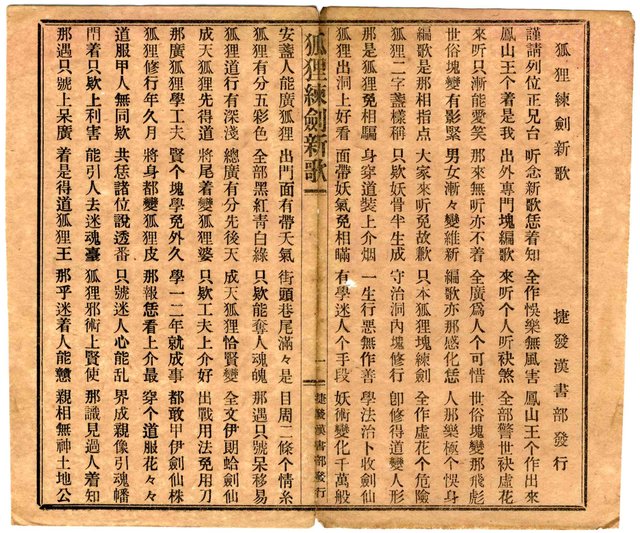 狐狸練劍新歌 捷發漢書部發行
謹請列位正兄台 听念新歌恁着知 全作娛樂無風害 鳳山王个作出來
鳳山王个着是我 出外專門塊編歌 來听个人听袂煞 全部警世袂虛花
來听只漸能愛笑 那來無听亦不着 全廣爲人个可惜 世俗塊變那飛彪
世俗塊變有影緊 男女漸々變維新 編歌亦那感化恁 人那樂極个悞身
編歌是那相指点 大家來听免故歉 只本狐狸塊練劍 全作虛花个危險
狐狸二字盞樣稱 只欵妖骨半生成 守治洞內塊修行 卽修得道變人形
那是狐狸免相騙 身穿道裝上介烟 一生行惡無作善 學法治卜收劍仙
狐狸出洞上好看 面帶妖氣免相瞞 有學迷人个手段 妖術變化千萬般
狐狸練劍新歌 一 捷發漢書部發行
安盞人能廣狐狸 出門面有帶天氣 街頭巷尾滿々是 目周二條个情糸
狐狸有分五彩色 全部黑紅靑白綠 只欵能奪人魂魄 那遇只號呆移易
狐狸道行有深淺 總廣有分先後天 成天狐狸恰賢變 全文伊朗蛤劍仙
成天狐狸先得道 將尾着變狐狸婆 只欵工夫上介好 出戰用法免用刀
那廣狐狸學工夫 賢个塊學免外久 學一二年就成事 都敢甲伊劍仙株
狐狸修行年久月 將身都變狐狸皮 那報恁看上介最 穿个道服花々々
道服甲人無同欵 共恁諸位說透番 只號迷人心能乱 界成親像引魂幡
門着只欵上利害 能引人去迷魂臺 狐狸邪術上賢使 那識見過人着知
那遇只號上呆廣 着是得道狐狸王 那乎迷着人能戇 親相無神土地公